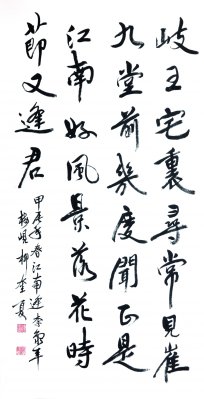 岐王宅裏尋常見崔
九堂前幾度聞正是
江南好風景落花時
節又逢君
甲辰年春江南逢李龜年
柳奎夏